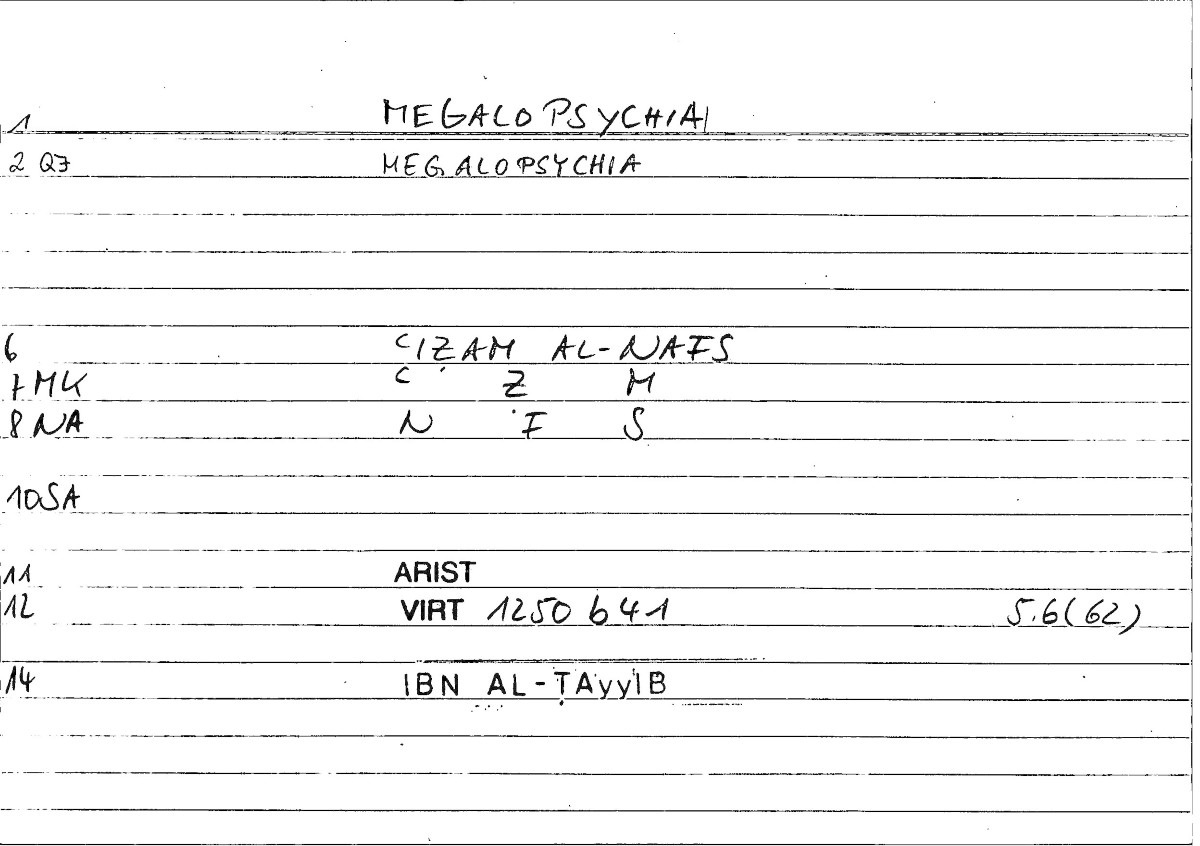 1 MEGALOPSYCHIA
2 QJ MEGALOPSYCHIA
6 ʿIẒAM AL-NAFS
7 MK ʿ Ẓ M
8 NA N F S
10 SA
11 ARIST
12 VIRT 1250 b 41 5.6(62)
14 IBN AL-ṬAyyIB